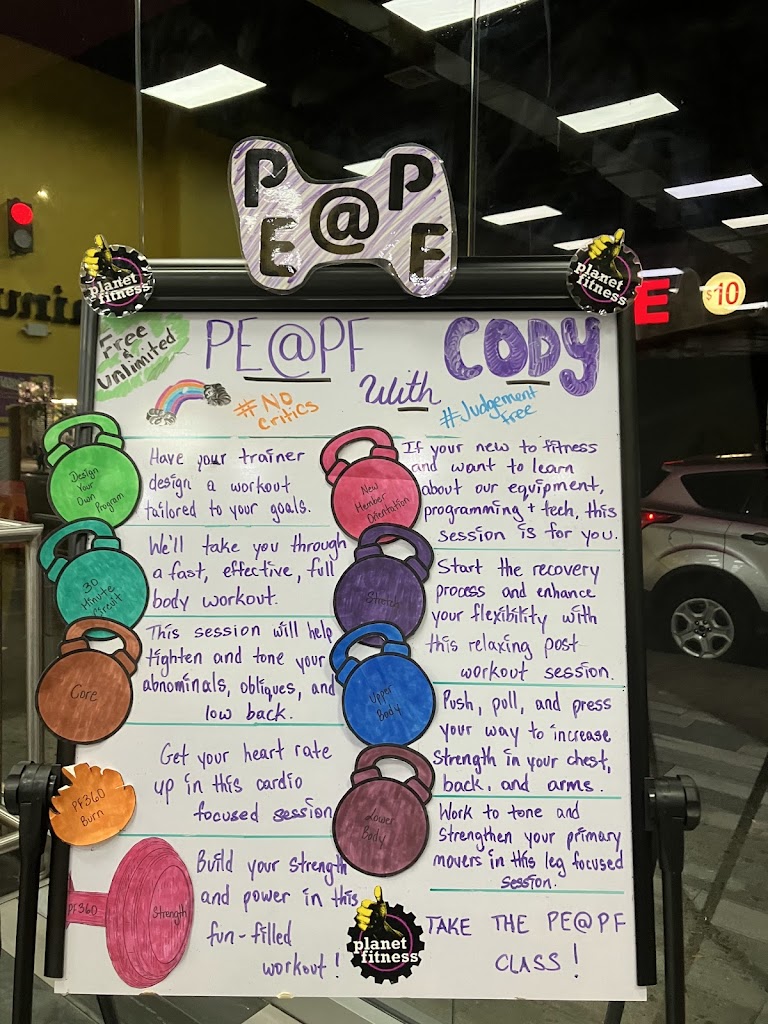 P P
@
E F
planet fitness
planet fitness
$10
Free & unlimited
PE@PF
With
CODY
#NO Critics
#Judgement Free
Design Your Own Program
Have your trainer
design a workout
tailored to your goals.
30 Minute Circuit
We'll take you through
a fast, effective, full
body workout.
Core
This session will help
tighten and tone your
abnominals, obliques, and
low back.
PF360 Burn
Get your heart rate
up in this cardio
focused session
PF360 Strength
Build your Strength
and power in this
fun-filled
workout!
New Member Orientation
If your new to fitness
and want to learn
about our equipment,
programming + tech, this
session is for you.
Stretch
Start the recovery
process and enhance
your flexibility with
this relaxing post
workout session.
Upper Body
Push, pull, and press
your way to increase
Strength in your chest,
back, and arms.
Lower Body
Work to tone and
Strengthen your primary
movers in this leg focused
session.
planet fitness
TAKE THE PE@PF
CLASS!